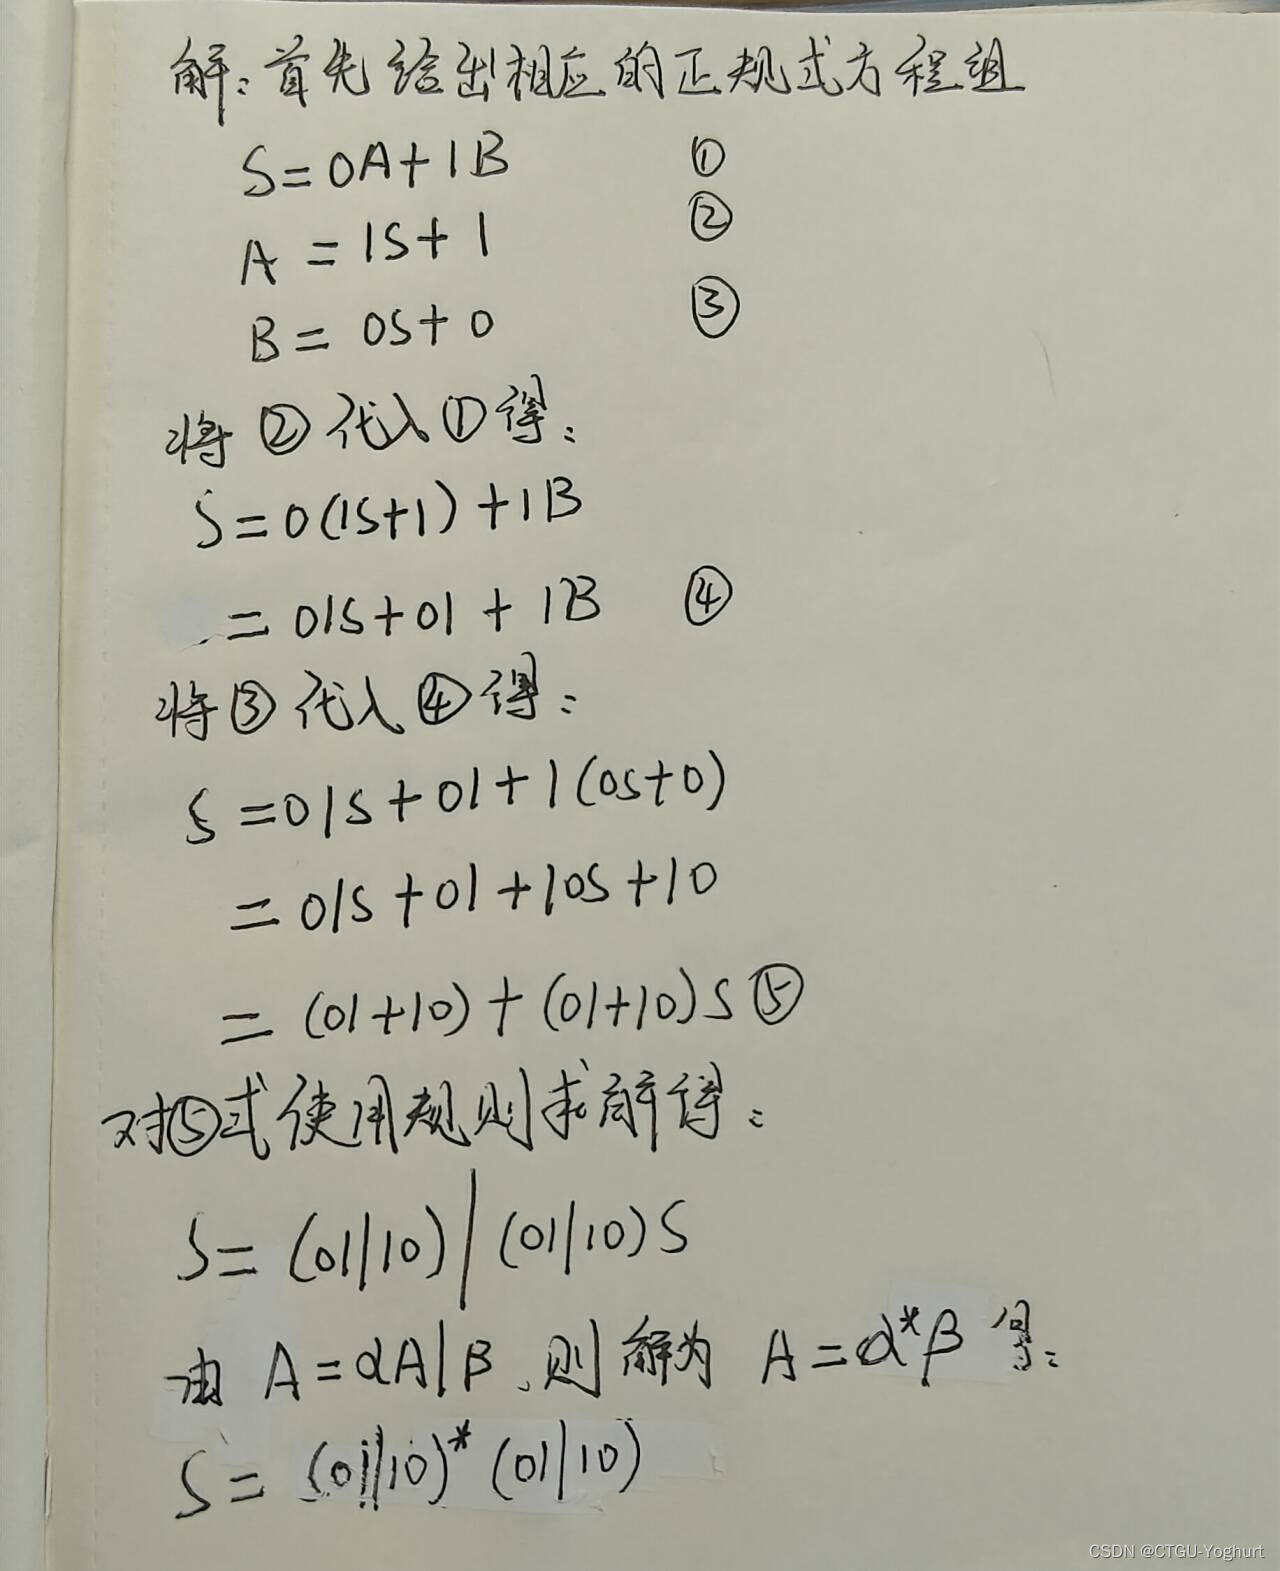 解:首先给出相应的正规式方程组
S=0A+1B ①
A=1S+1 ②
B=0S+0 ③
将②代入①得:
S=0(1S+1)+1B
=01S+01+1B ④
将③代入④得:
S=01S+01+1(0S+0)
=01S+01+10S+10
=(01+10)+(01+10)S ⑤
对⑤式使用规则求解得:
S=(01|10)|(01|10)S
由 A=αA|β,则解为 A=α*β 得:
S=(01|10)*(01|10)
CSDN @CTGU-Yoghurt